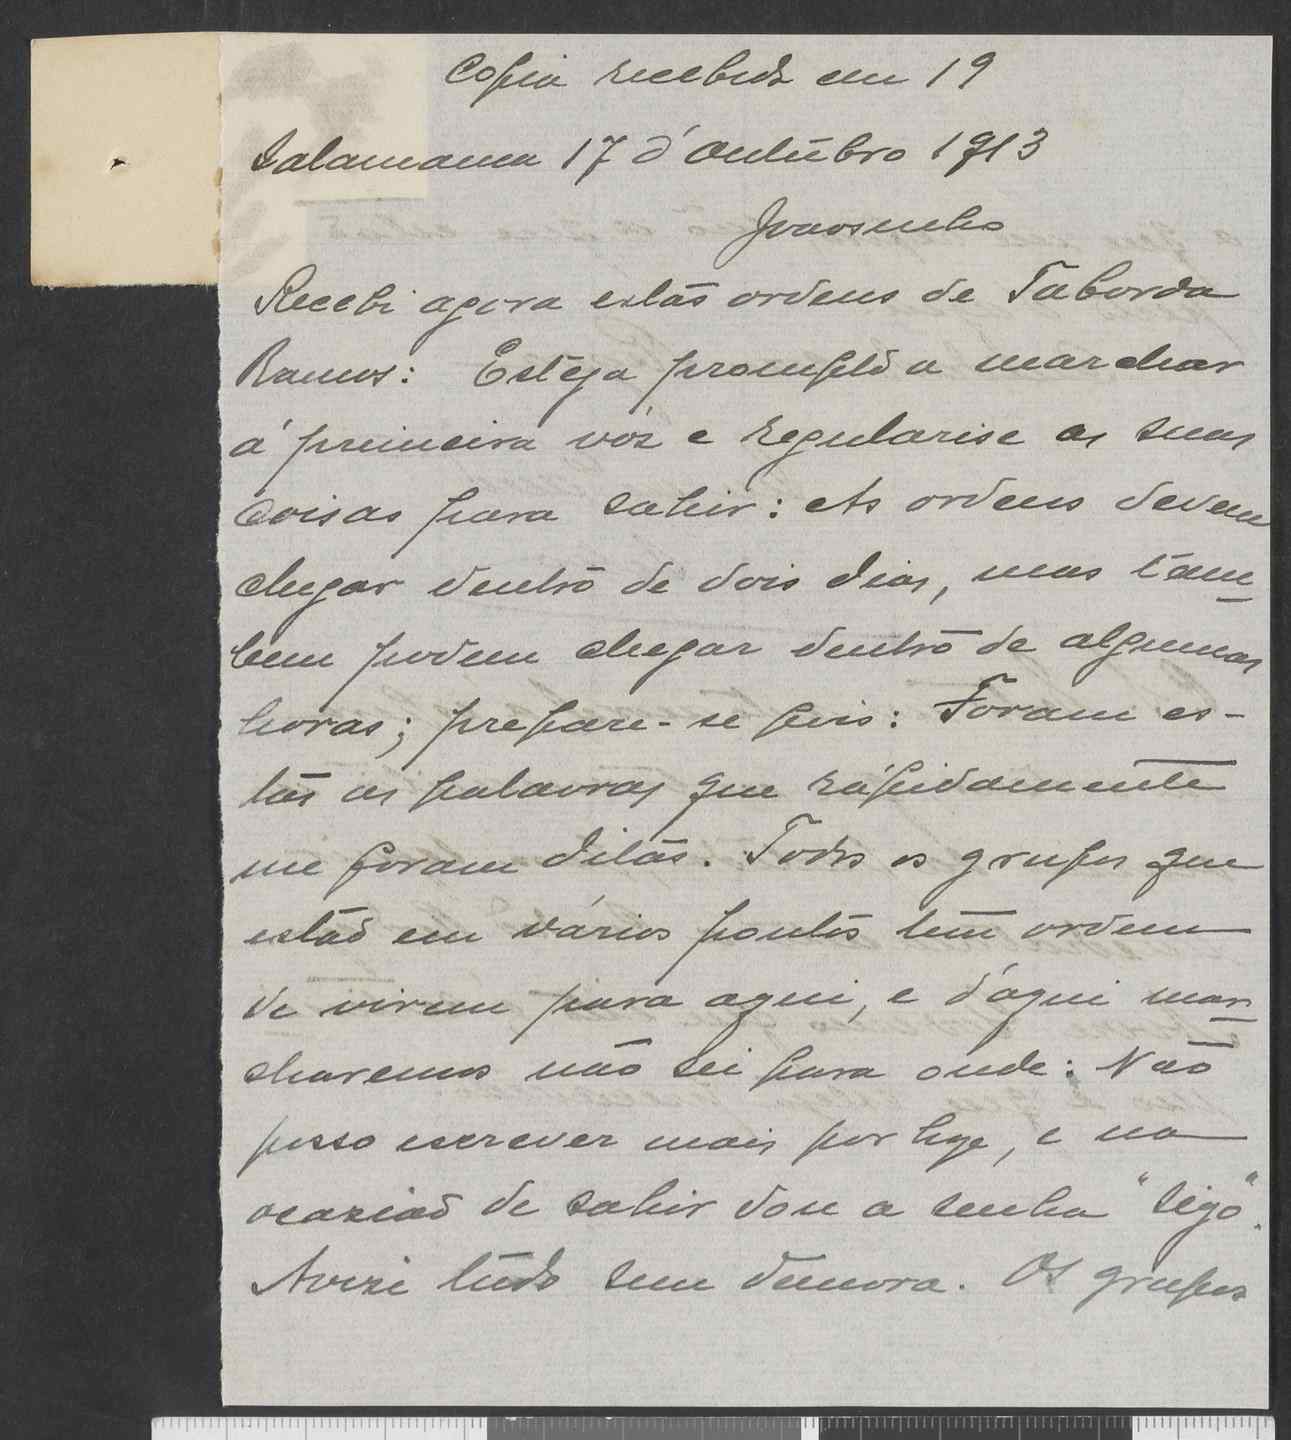 Copia recebida em 19
Salamanca 17 d'Outubro 1913
Joaosinho
Recebi agora estas ordens de Taborda
Ramos: Esteja prompto a marchar
á primeira vóz e regularise as suas
coisas para sahir: As ordens devem
chegar dentro de dois dias, mas tam-
bem podem chegar dentro de algumas
horas; prepare-se pois: Foram es-
tas as palavras que rápidamente
me foram ditas. Todos os grupos que
estão em vários pontos tem ordem
de virem para aqui, e d'aqui mar-
charemos não sei para onde: Não
posso escrever mais por hoje, e na
ocazião de sahir dou a senha "Sigo".
Avize tudo sem demora. Os grupos